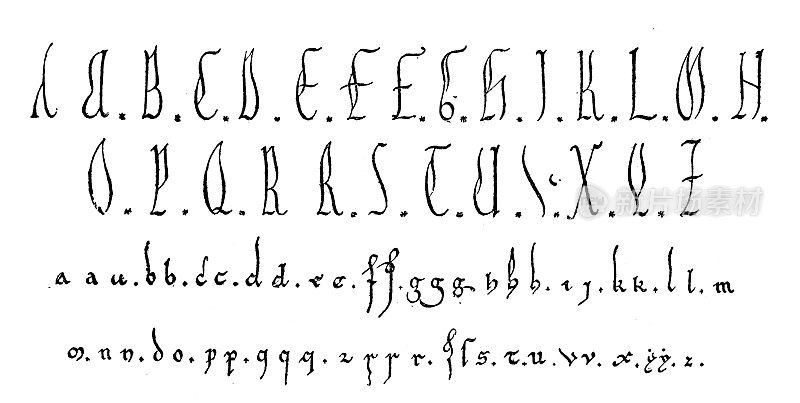 A A . B . C . D . E . E E . G . H . I . K . L . M . N .
O . P . Q . R R . S . T . U . V . X . Y . Z
a a a . b b . c c . d d . e e . f f . g g g . h h h . i j . k k . l l . m
m . n n . o o . p p . q q q . r r r r . s s s . t . u . v v . x . ÿ ÿ . z .
新片场素材